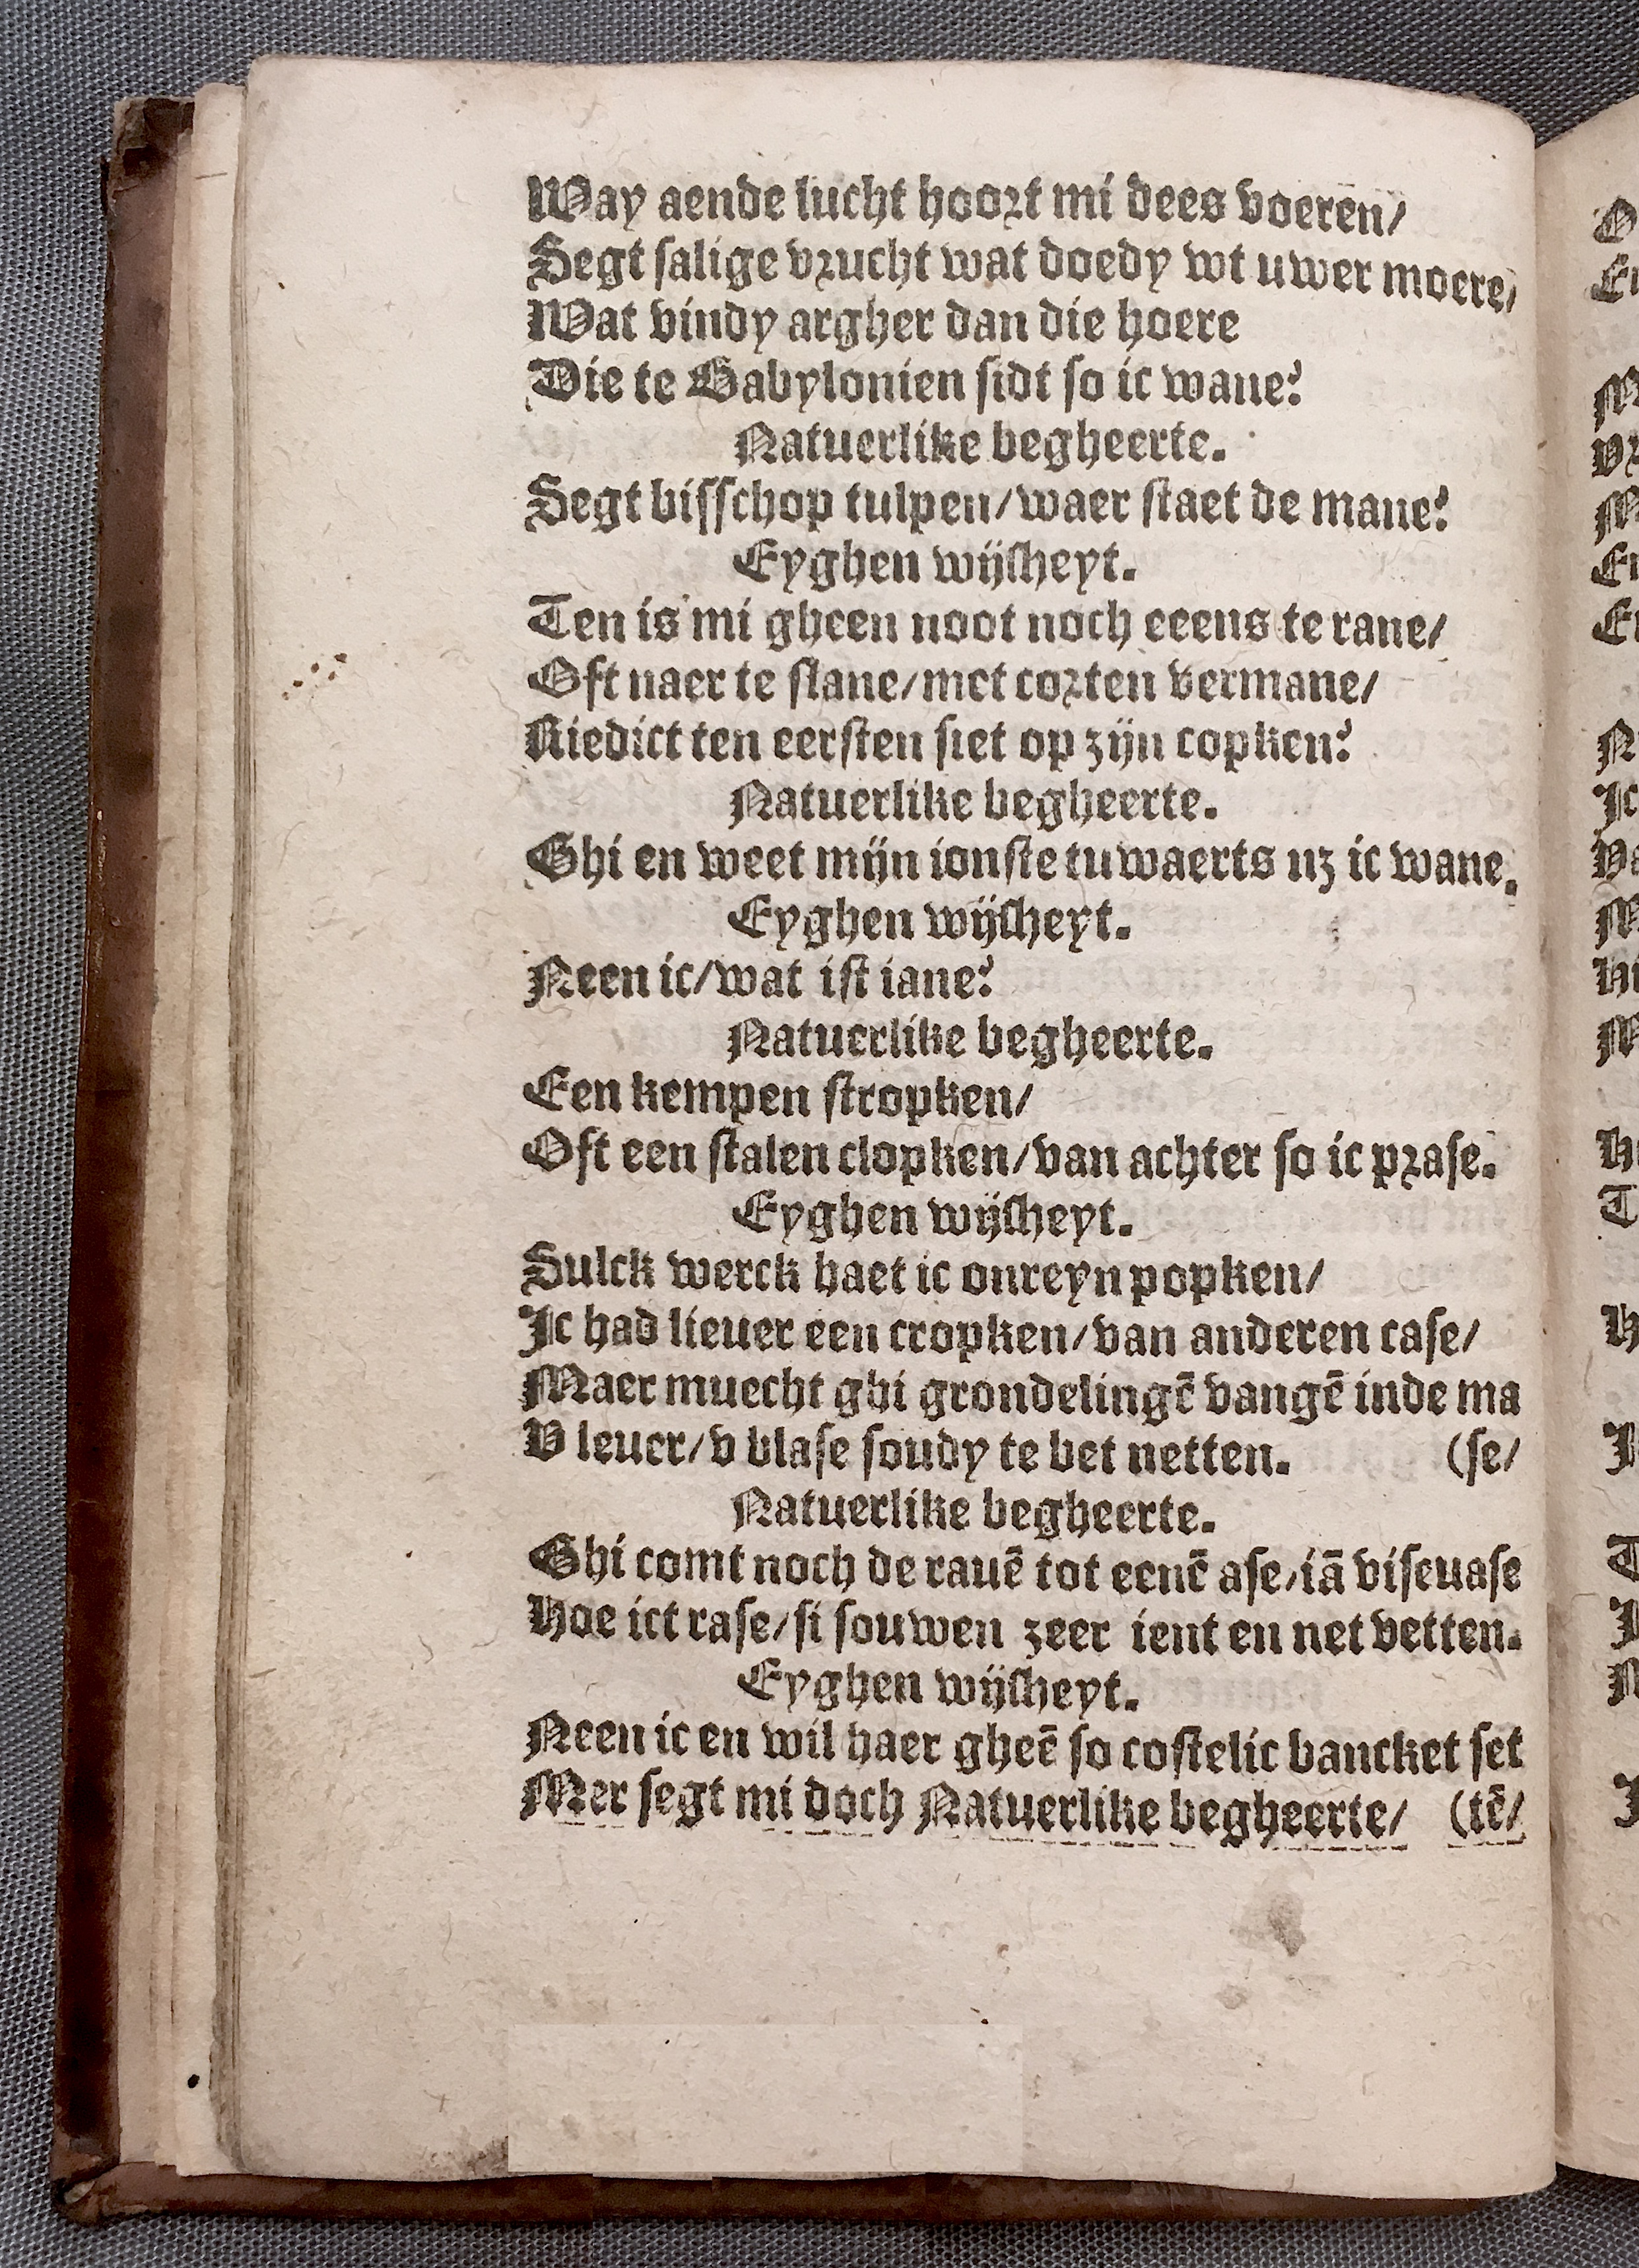 Way aende lucht hoort mi dees voeren/
Segt salige vrucht wat doedy wt uwer moere/
Wat vindy argher dan die hoere
Die te Babylonien sidt so ic wane?
Natuerlike begheerte.
Segt bisschop tulpen/waer staet de mane?
Eyghen wijsheyt.
Ten is mi gheen noot noch eeens te rane/
Oft naer te slane/met corten vermane/
Riedict ten eersten siet op zijn copken?
Natuerlike begheerte.
Ghi en weet mijn ionste tuwaerts nz ic wane.
Eyghen wijsheyt.
Neen ic/wat ist iane?
Natuerlike begheerte.
Een kempen stropken/
Oft een stalen clopken/van achter so ic prase.
Eyghen wijsheyt.
Sulck werck haet ic onreyn popken/
Ic had lieuer een cropken/van anderen case/
Maer muecht ghi grondelingē vangē inde ma
V leuer/v blase soudy te bet netten. (se/
Natuerlike begheerte.
Ghi comt noch de rauē tot eenē ase/iā viseuase
Hoe ict rase/si souwen zeer ient en net vetten.
Eyghen wijsheyt.
Neen ic en wil haer gheē so costelic bancket set
Mer segt mi doch Natuerlike begheerte/ (tē/